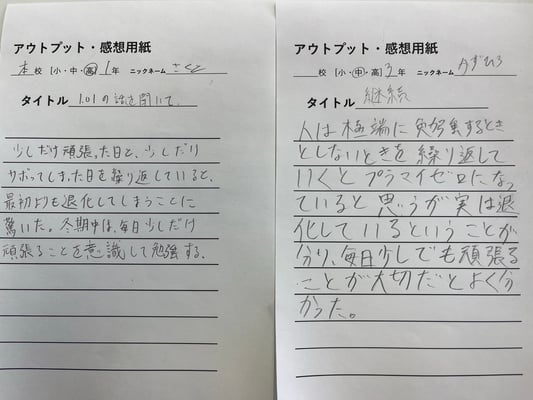 アウトプット・感想用紙
本校 [小・中・高] 1年 ニックネーム さくと
タイトル 1.01の話を聞いて。
少しだけ頑張った日と、少しだけ
サボってしまった日を繰り返していると、
最初よりも退化してしまうことに
驚いた。冬期中は、毎日少しだけ
頑張ることを意識して勉強する。
アウトプット・感想用紙
校 [小・中・高] 3年 ニックネーム かずひろ
タイトル 継続
人は極端に勉強するとき
としないときを繰り返して
いくとプラマイゼロになっ
ていると思うが実は退
化しているということが
分り、毎日少しでも頑張る
ことが大切だとよく分
かった。